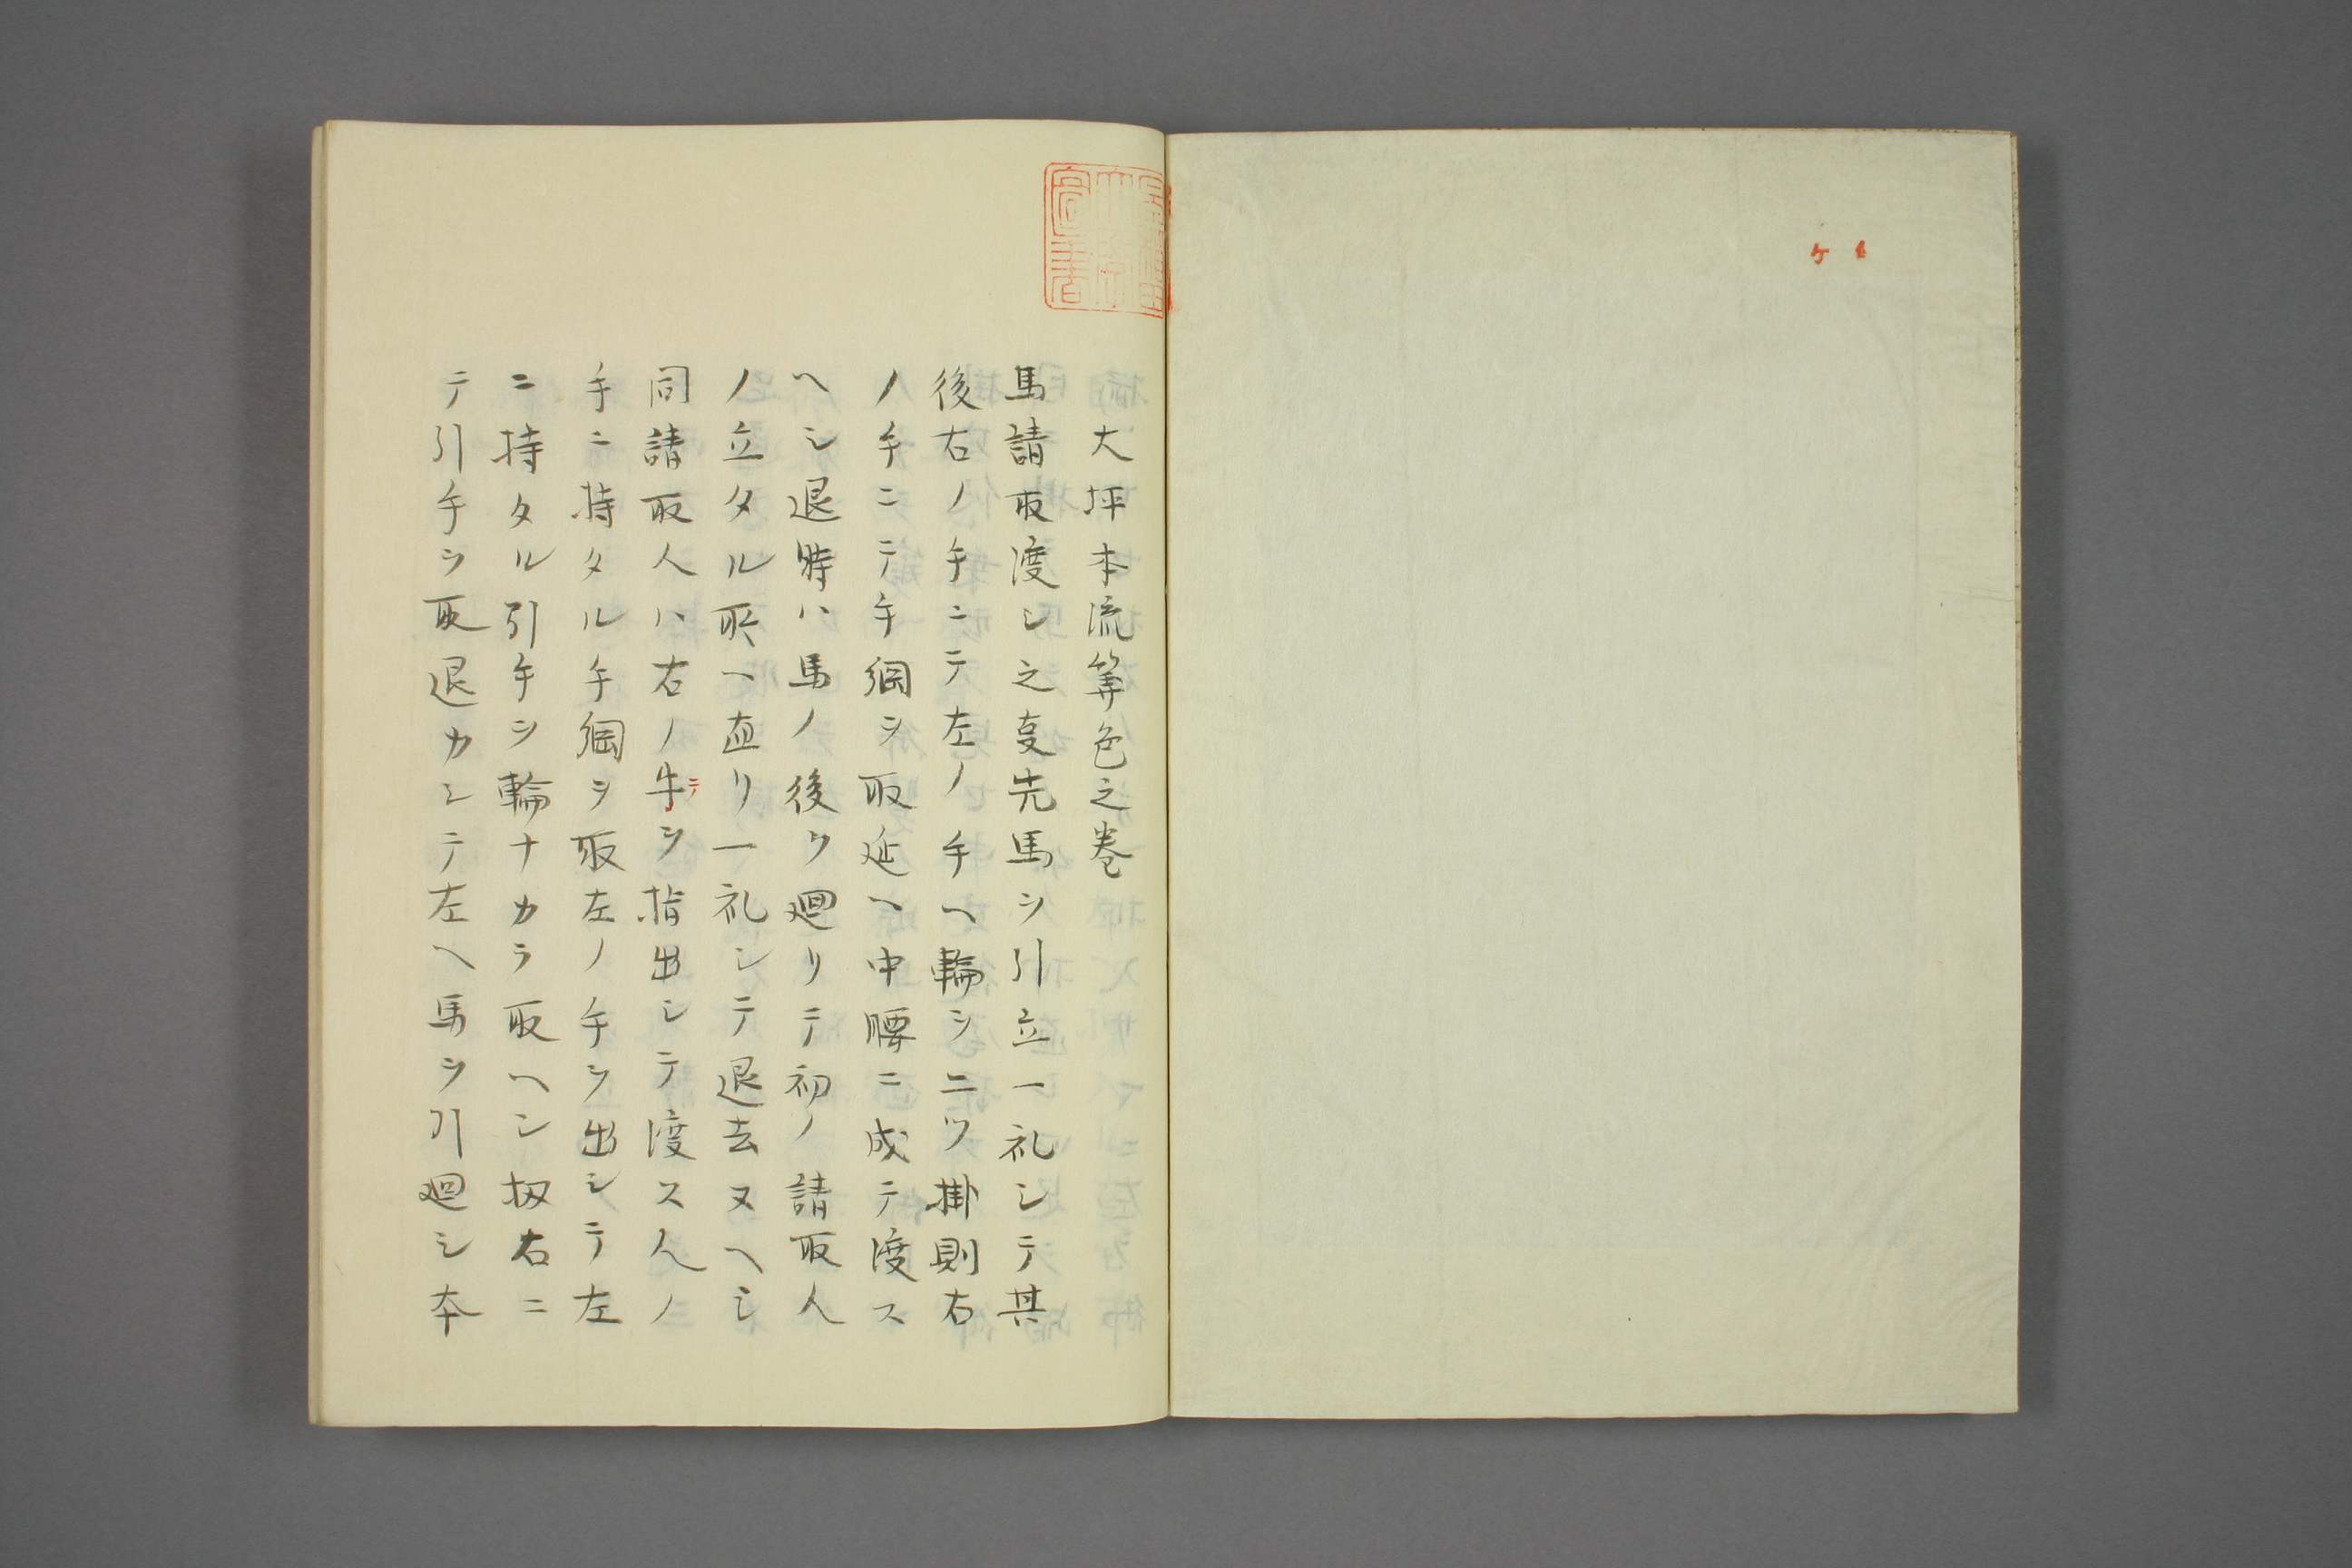 大坪本流䇭色之巻
馬請取渡シ之㕝先馬ヲ引立一礼シテ其
後右ノ手ニテ左ノ手ヘ輪ヲ二ツ掛則右
ノ手ニテ手綱ヲ取延ヘ中腰ニ成テ渡ス
ヘシ退時ハ馬ノ後ウ廻リテ初ノ請取人
ノ立タル所ヘ直リ一礼シテ退去スヘシ
同請取人ハ右ノ牛テヲ指出シテ渡ス人ノ
手ニ持タル手綱ヲ取左ノ手ヲ出シテ左
ニ持タル引手ヲ輪ナカラ取ヘシ扨右ニ
テ引手ヲ取退カシテ左ヘ馬ヲ引廻シ本